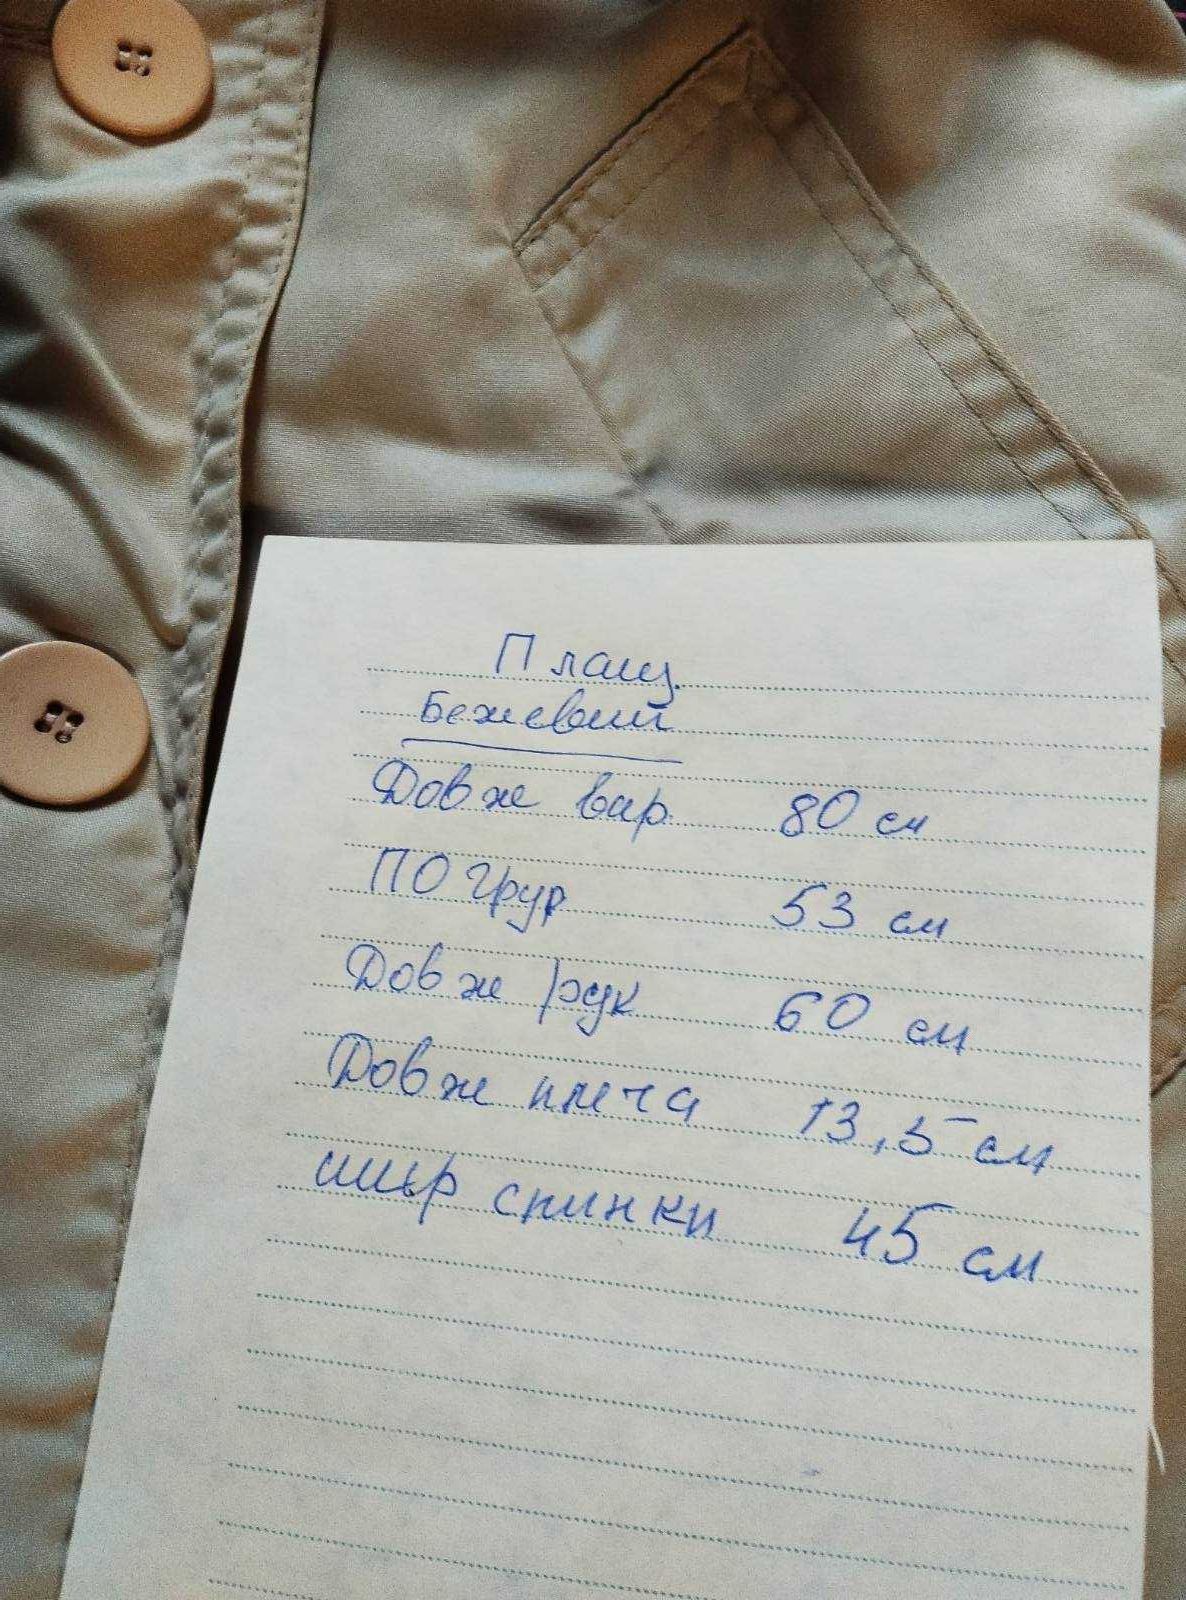 Плащ
Бежевий
Довж вир 80 см
ПО груд 53 см
Довж рук 60 см
Довж плеча 13,5 см
шир спинки 45 см